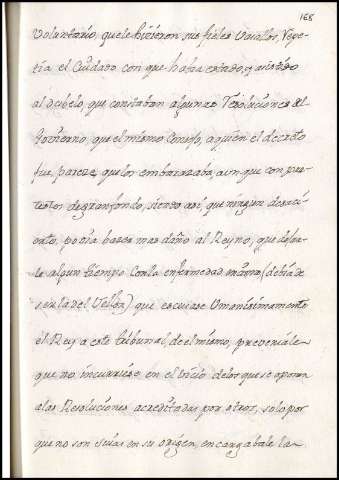 168
voluntario, que le hizieron sus fieles Vasallos, Repe-
tia el Cuidado con que havia estado, y asistido
al dubelo, que constaban algunas Resoluciones del
govierno, que el mismo Consejo, a quien el decreto
fue, parece, que los embarazaba, aun que con pre-
testos de gran fondo, siendo asi que ningun desaci-
erto, podia hazer mas daño al Reyno, que dejar-
le algun tiempo con la enfermedad, (debia de
ser la del Vellon) que escuiase Umanisimamente
el Rey a este tribunal, de el mismo, previniale
que no incurriese en el vicio de los que se oponen
a las Resoluciones acreditadas por otros, solo por
que no son suias en su origen, encargabale la